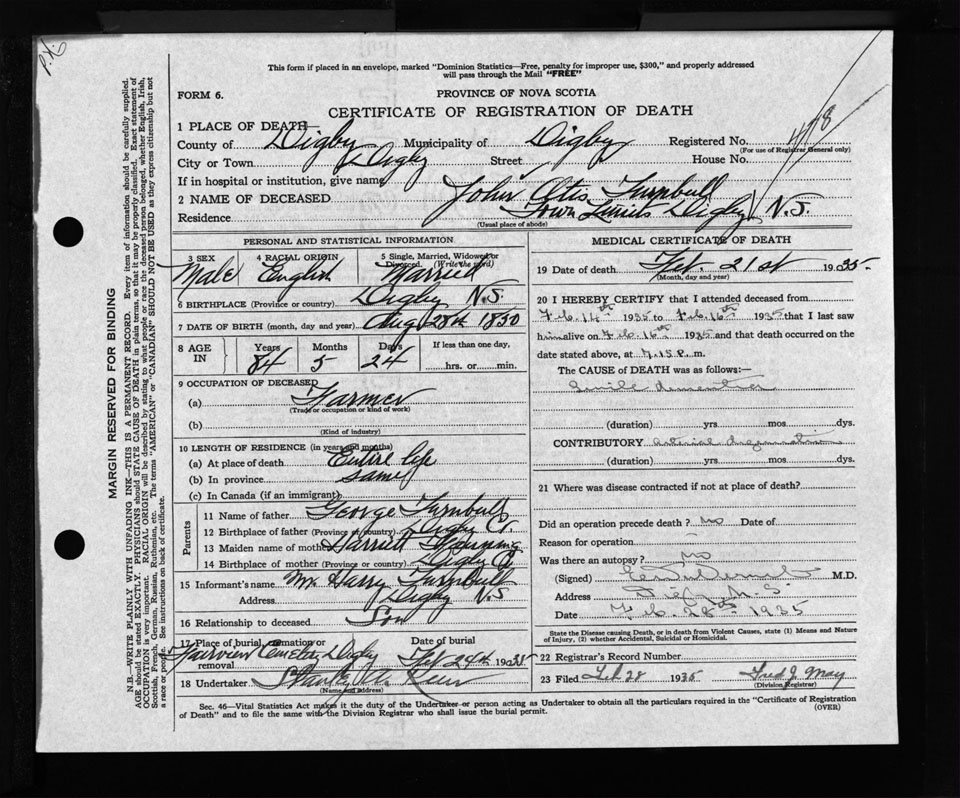 P.K.
This form if placed in an envelope, marked "Dominion Statistics—Free, penalty for improper use, $300," and properly addressed
will pass through the Mail "FREE"
FORM 6.
PROVINCE OF NOVA SCOTIA
CERTIFICATE OF REGISTRATION OF DEATH
1 PLACE OF DEATH—
County of Digby Municipality of Digby Registered No. 478
(For use of Registrar General only)
City or Town Digby Street House No.
If in hospital or institution, give name
2 NAME OF DECEASED John Otis Turnbull
Residence Town Limits Digby N.S.
(Usual place of abode)
PERSONAL AND STATISTICAL INFORMATION
3 SEX Male
4 RACIAL ORIGIN English
5 Single, Married, Widowed or Divorced. (Write the word) Married
6 BIRTHPLACE (Province or country) Digby N.S.
7 DATE OF BIRTH (month, day and year) Aug 28th 1850
8 AGE IN Years 84 Months 5 Days 24 If less than one day, hrs. or min.
9 OCCUPATION OF DECEASED
(a) Farmer
(Trade or occupation or kind of work)
(b)
(Kind of industry)
10 LENGTH OF RESIDENCE (in years and months)
(a) At place of death Entire life
(b) In province same
(c) In Canada (if an immigrant)
Parents
11 Name of father George Turnbull
12 Birthplace of father (Province or country) Digby Co.
13 Maiden name of mother Harriett
14 Birthplace of mother (Province or country) Digby Co
15 Informant's name Mr. Harry Turnbull
Address Digby N.S
16 Relationship to deceased Son
17 Place of burial, cremation or removal Fairview Cemetery Digby
Date of burial Feb 24th 1935
18 Undertaker Stanley
(Name and address)
MEDICAL CERTIFICATE OF DEATH
19 Date of death Feb. 21st 1935.
(Month, day and year)
20 I HEREBY CERTIFY that I attended deceased from
Feb. 14th 1935 to Feb. 16th 1935 that I last saw
him alive on Feb. 16th 1935 and that death occurred on the
date stated above, at 7.15 P. m.
The CAUSE of DEATH was as follows:—
Senile dementia
(duration) yrs mos dys.
CONTRIBUTORY arterial degeneration
(duration) yrs. mos. dys.
21 Where was disease contracted if not at place of death?
Did an operation precede death? no Date of
Reason for operation
Was there an autopsy? no
(Signed) M.D.
Address Digby N.S.
Date Feb. 28th 1935
State the Disease causing Death, or in death from Violent Causes, state (1) Means and Nature
of Injury, (2) whether Accidental, Suicidal or Homicidal.
22 Registrar's Record Number
23 Filed Feb 28 1935 Fred J. May
(Division Registrar)
Sec. 46—Vital Statistics Act makes it the duty of the Undertaker or person acting as Undertaker to obtain all the particulars required in the "Certificate of Registration
of Death" and to file the same with the Division Registrar who shall issue the burial permit.
(OVER)
MARGIN RESERVED FOR BINDING
N.B.—WRITE PLAINLY WITH UNFADING INK—THIS IS A PERMANENT RECORD. Every item of information should be carefully supplied.
AGE should be stated EXACTLY. PHYSICIANS should STATE CAUSE OF DEATH in plain terms, so that it may be properly classified. Exact statement of
OCCUPATION is very important. RACIAL ORIGIN will be described by stating to what people or race the deceased person belonged, whether English, Irish,
Scottish, French, German, Russian, Ruthenian, etc. The terms "AMERICAN" or "CANADIAN" SHOULD NOT BE USED as they express citizenship but not
a race or people. See instructions on back of certificate.